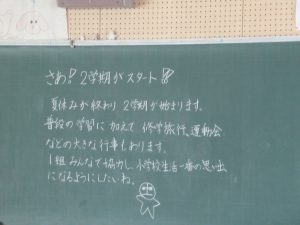 さあ！2学期がスタート!!
夏休みが終わり 2学期が始まります。
普段の学習に加えて 修学旅行、運動会
などの大きな行事もあります。
1組 みんなで協力し、小学校生活一番の思い出
になるようにしたいね。